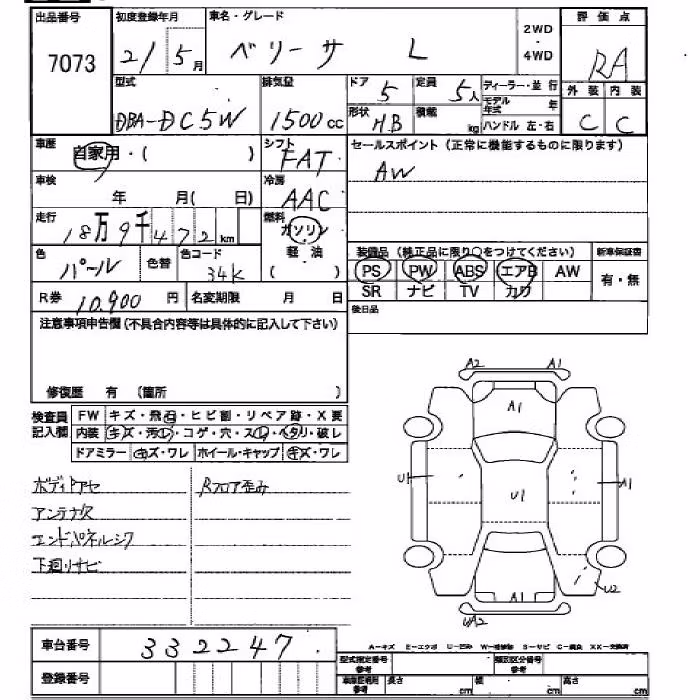 出品番号 初度登録年月 車名・グレード 2WD・4WD 評価点
7073 21 5月 ベリーサ L RA
型式 排気量 ドア 5 定員 5人 ディーラー・並行 外装 内装
DBA-DC5W 1500cc 形状 HB 積載 kg モデル年式 年 ハンドル 左・右 C C
車歴 自家用・( ) シフト FAT セールスポイント (正常に機能するものに限ります)
車検 年 月( 日) 冷房 AAC AW
走行 18万9千472km 燃料 ガソリン
軽油
( )
色 パール 色替 色コード 34K
装備品 (純正品に限り○をつけてください) 新車保証書
PS PW ABS エアB AW 有・無
SR ナビ TV カワ
R券 10,900円 名変期限 月 日 後日品
注意事項申告欄 (不具合内容等は具体的に記入して下さい)
修復歴 有 (箇所 )
検査員記入欄 FW キズ・飛石・ヒビ割・リペア跡・X要
内装 キズ・汚レ・コゲ・穴・スレ・ヘタリ・破レ
ドアミラー キズ・ワレ ホイール・キャップ キズ・ワレ
ボディトアセ Rフロア歪み
アンテナ欠
エンドパネルシワ
下廻リサビ
A2 A1
A1
U1 U1 A1
A1 U2
UA2
車台番号 332247
登録番号
A-キズ E-エクボ U-凹み W-補修跡 S-サビ C-腐食 XX-交換済
型式指定番号参考 類別区分番号参考
車庫証明用参考 長さ cm 幅 cm 高さ cm